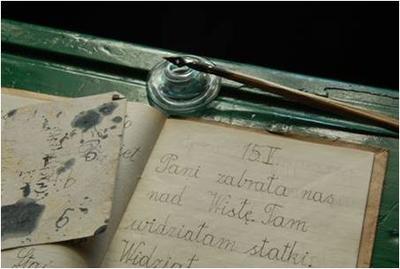 15.II
Pani zabrała nas
nad Wisłę. Tam
widziałam statki.
Widział
6
6